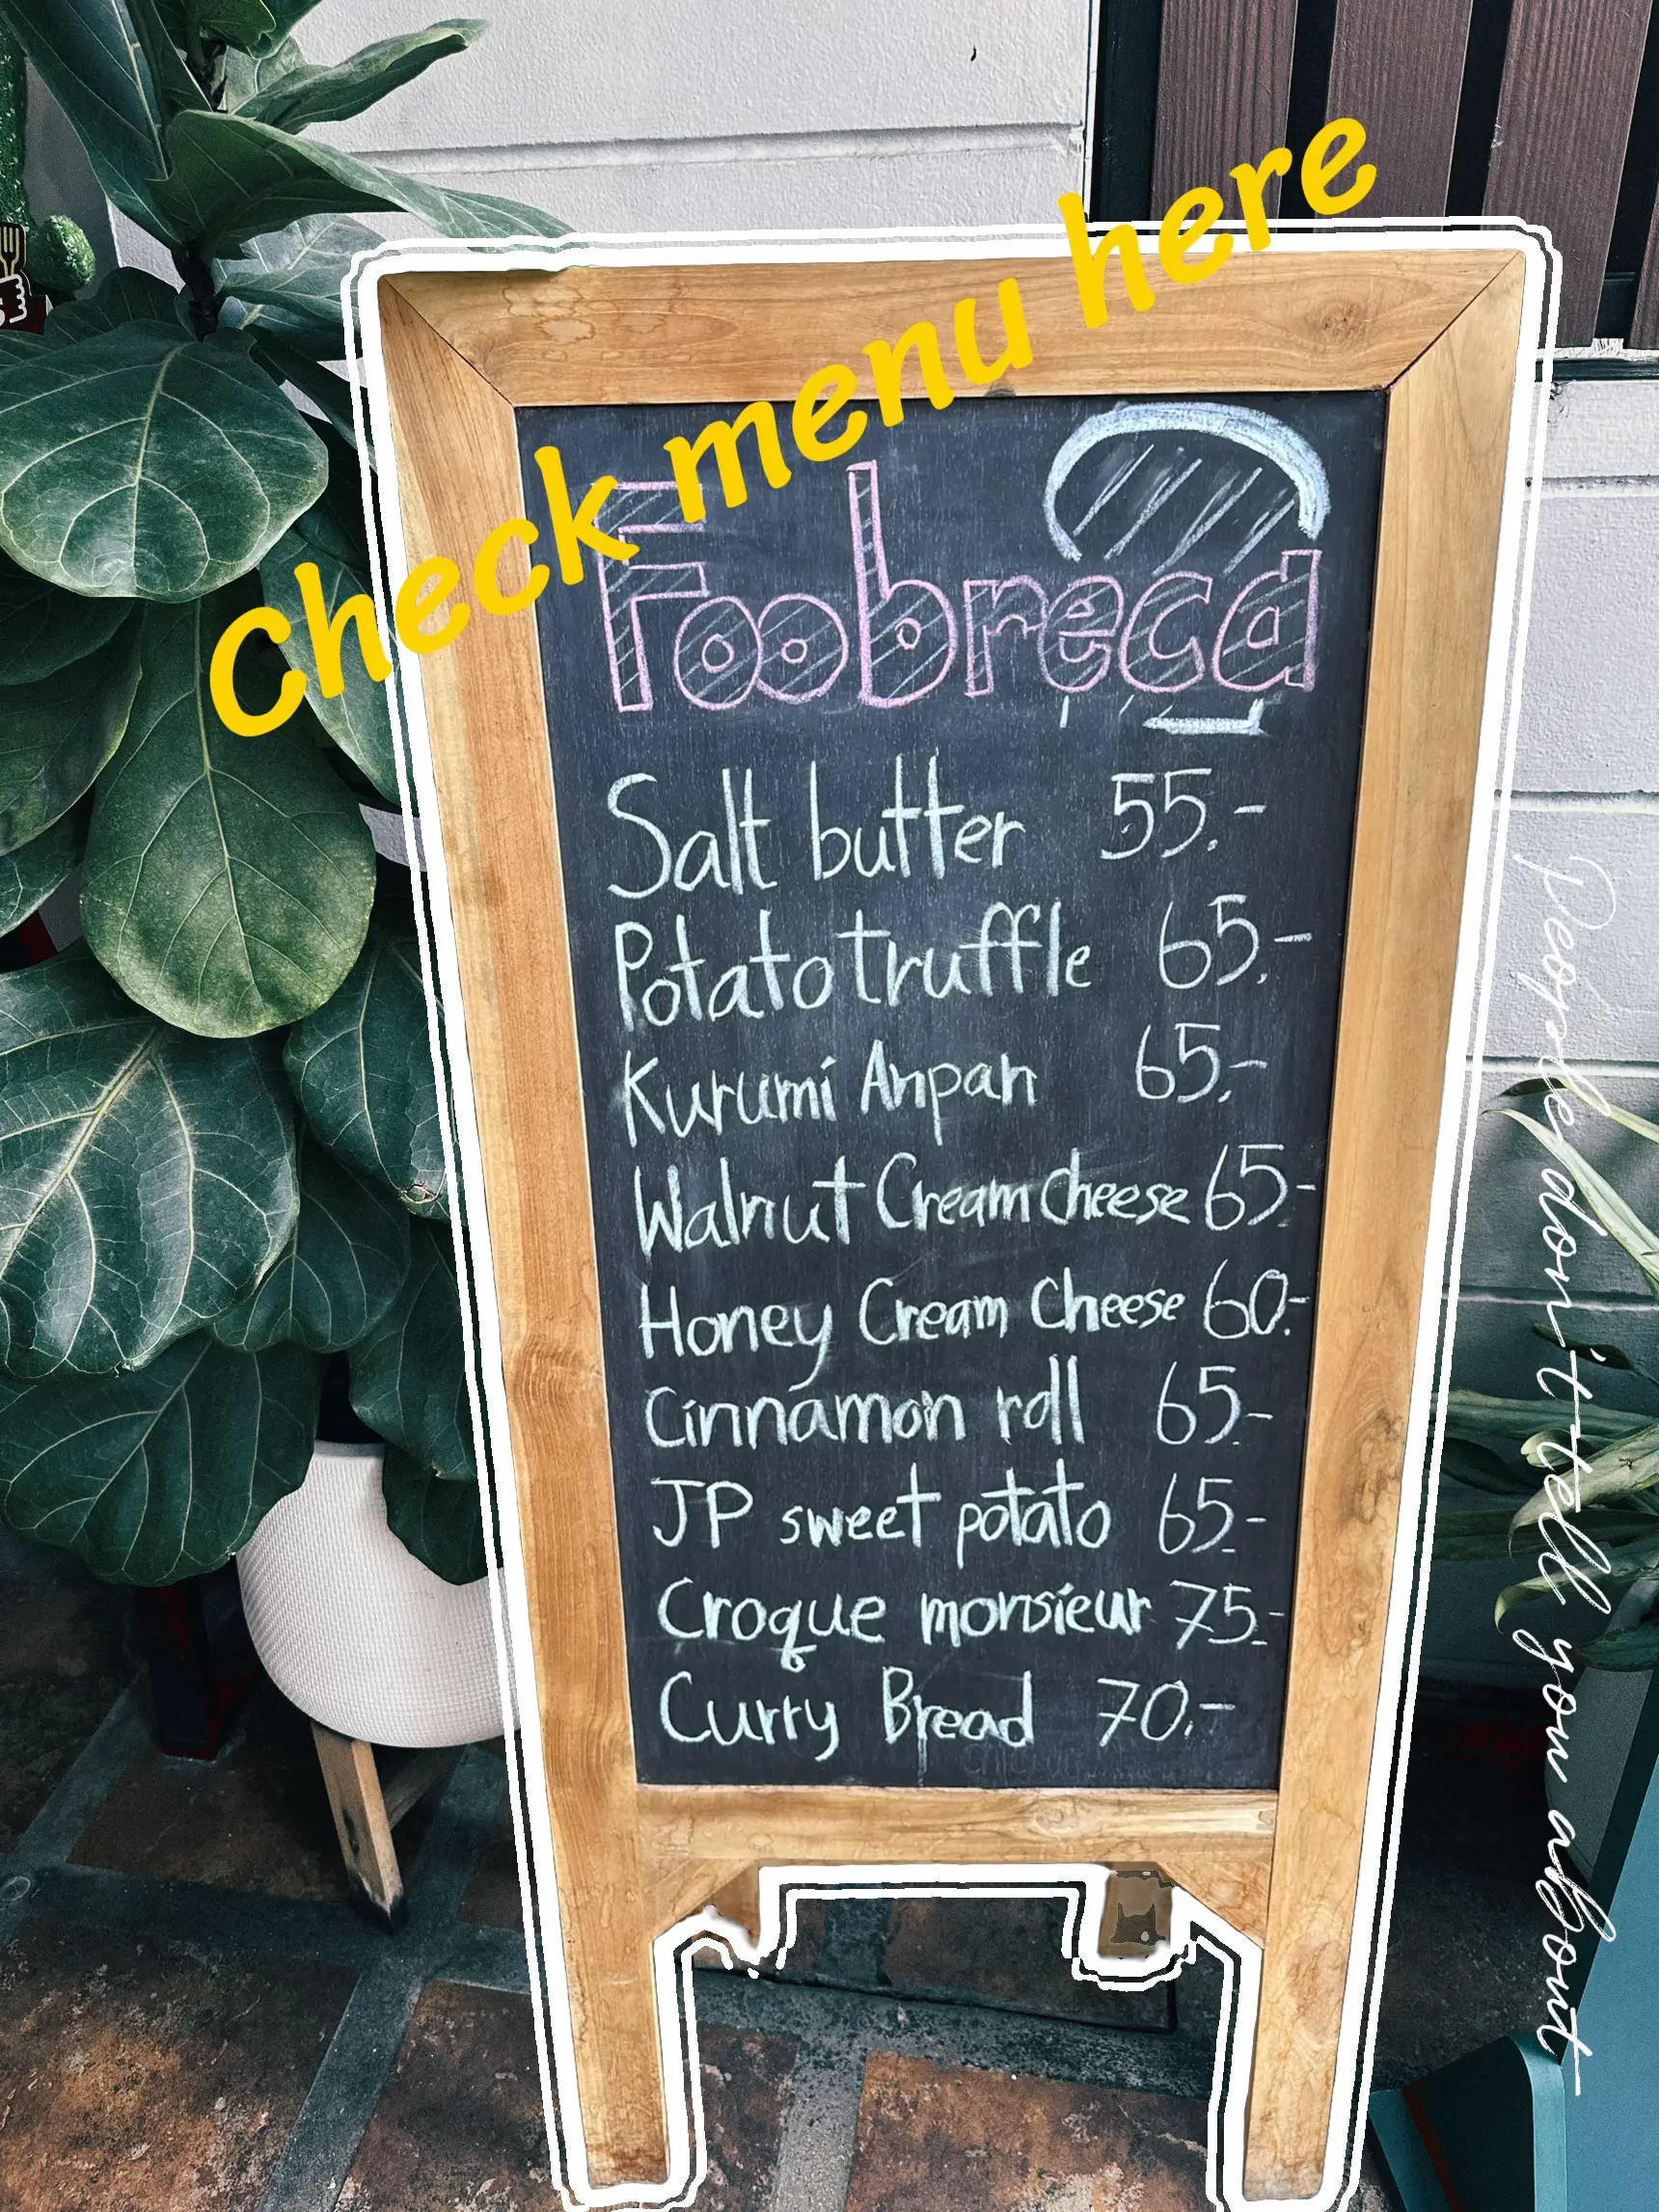 Check menu here
Foobread
Salt butter 55.-
Potato truffle 65.-
Kurumi Anpan 65.-
Walnut Cream Cheese 65.-
Honey Cream Cheese 60.-
Cinnamon roll 65.-
JP sweet potato 65.-
Croque monsieur 75.-
Curry Bread 70.-
People don't tell you about